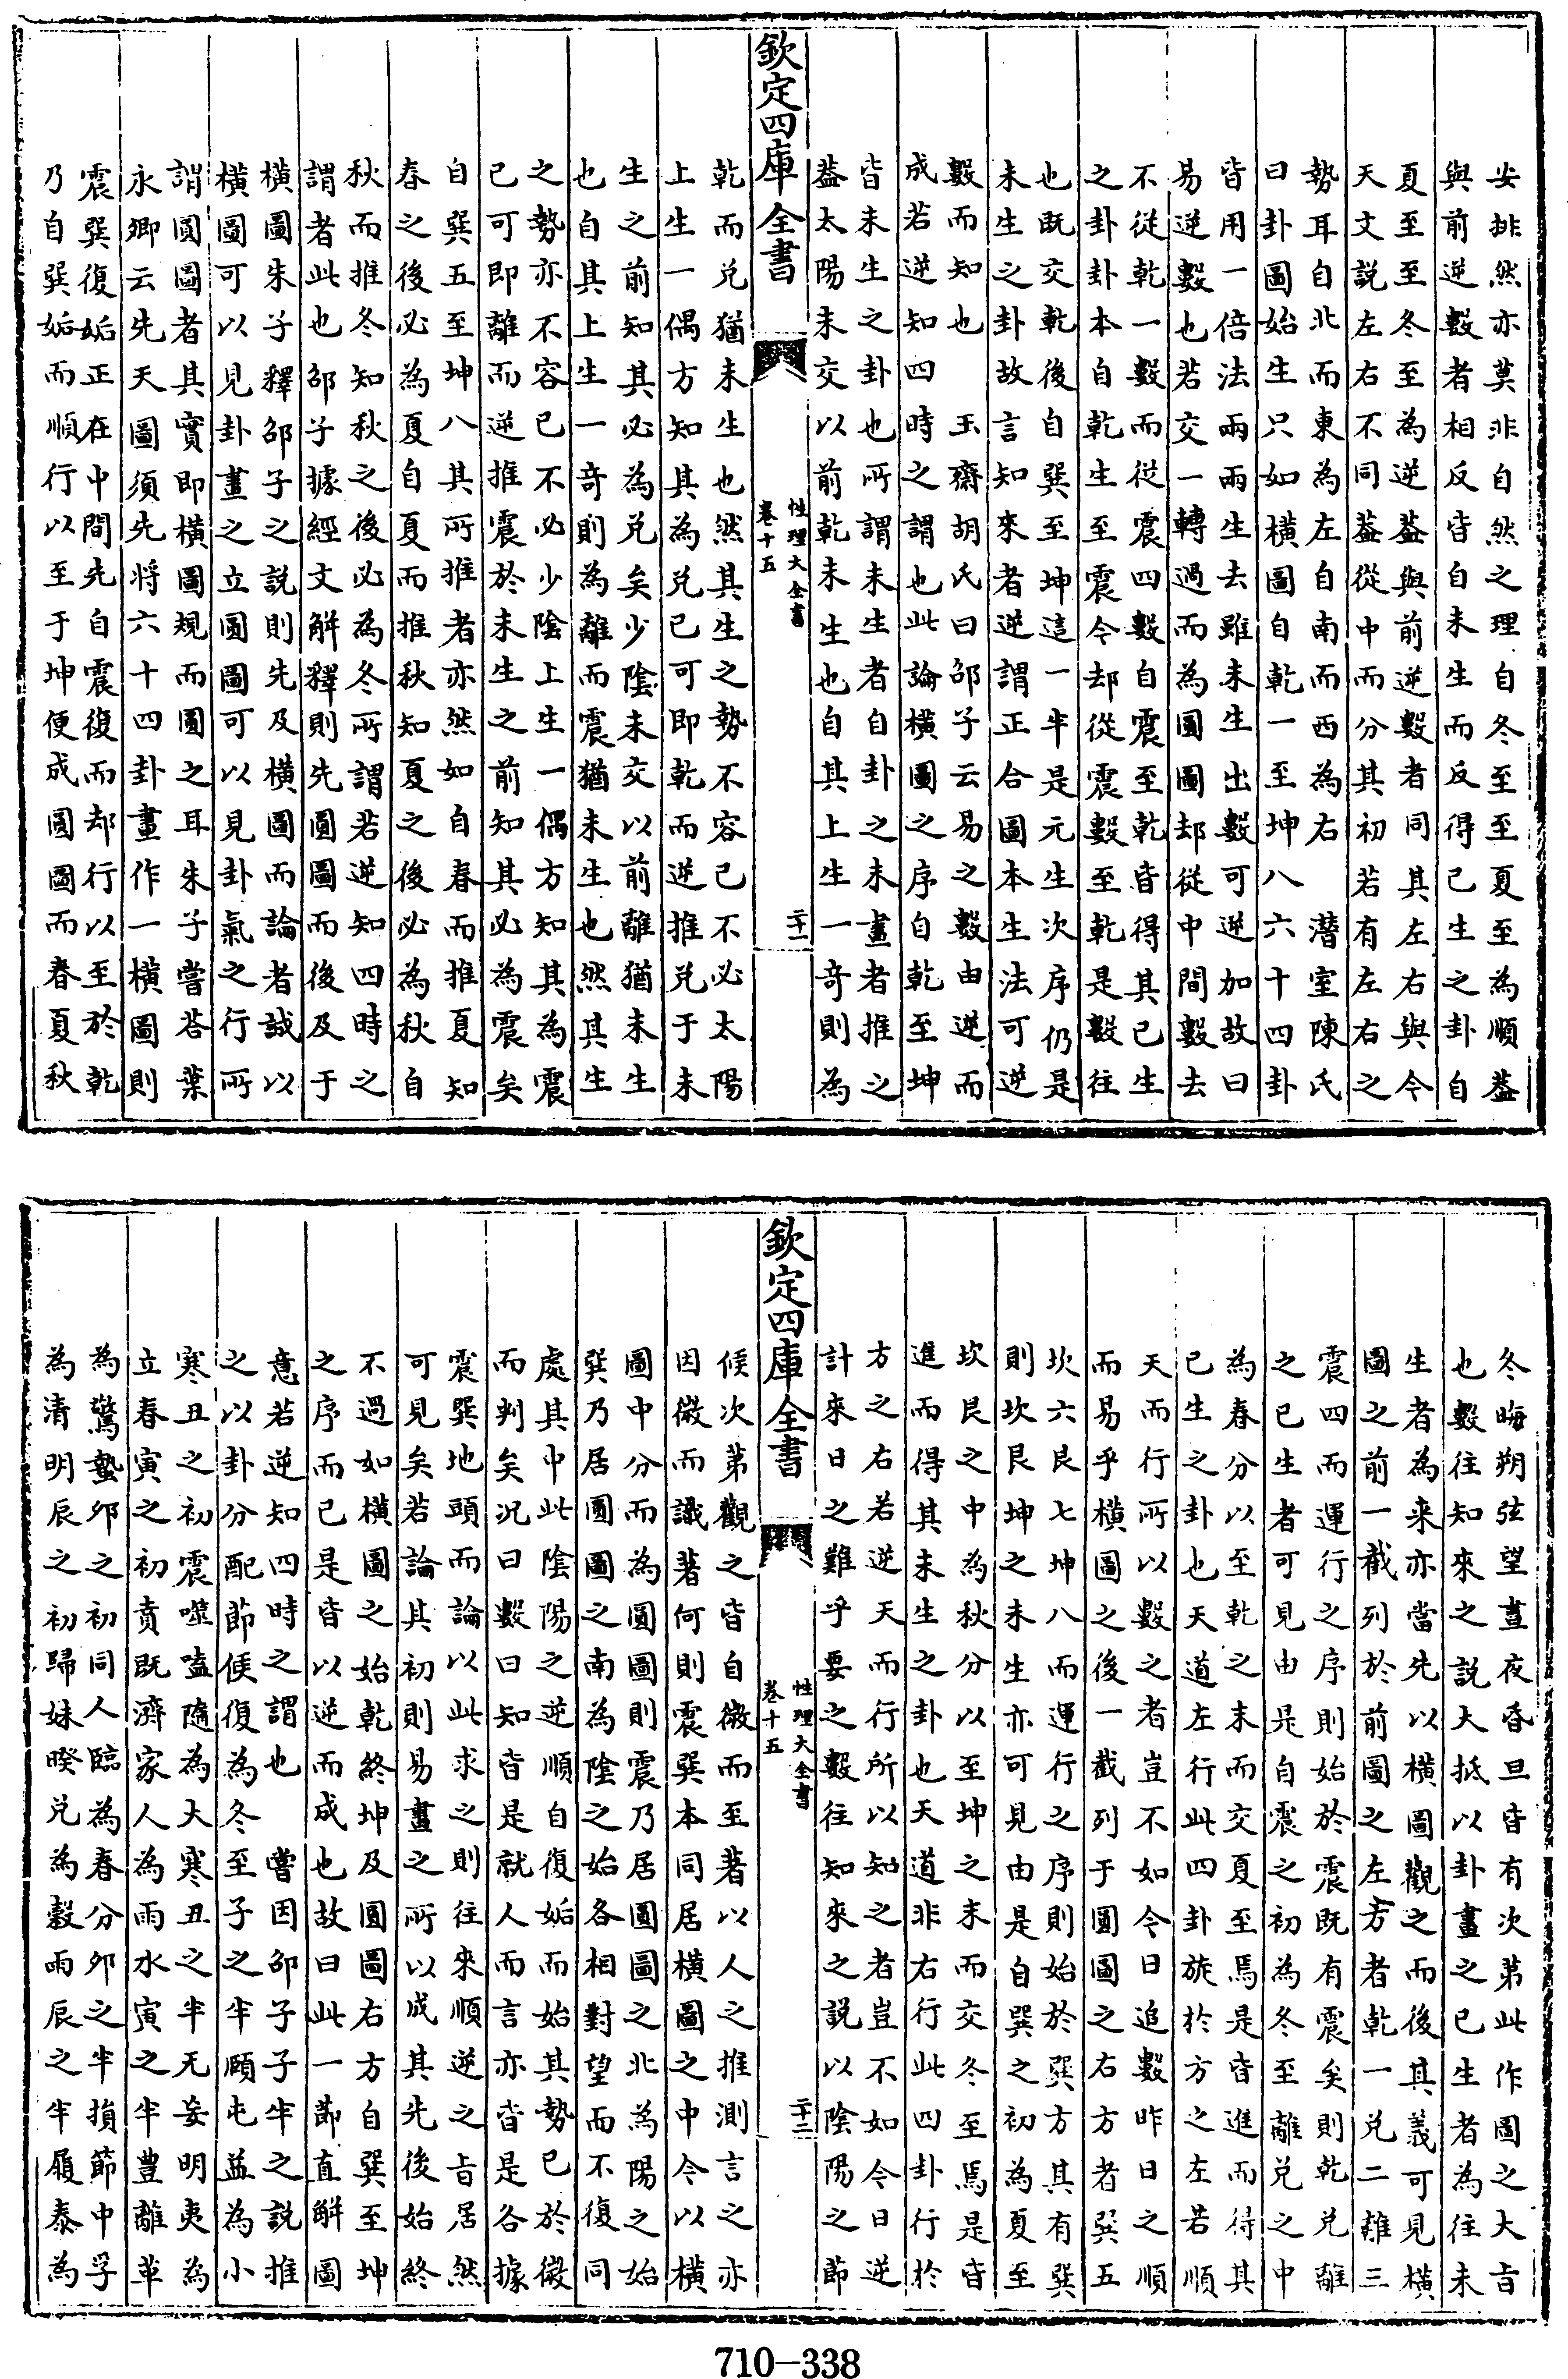 安排然亦莫非自然之理自冬至至夏至為順葢
與前逆數者相反皆自未生而反得已生之卦自
夏至至冬至為逆葢與前逆數者同其左右與今
天文説左右不同葢從中而分其初若有左右之
勢耳自北而東為左自南而西為右　潛室陳氏
曰卦圖始生只如橫圖自乾一至坤八六十四卦
皆用一倍法兩兩生去雖未生出數可逆加故曰
易逆數也若交一轉過而為圓圖却從中間數去
不從乾一數而從震四數自震至乾皆得其已生
之卦卦本自乾生至震今却從震數至乾是數往
也既交乾後自巽至坤這一半是元生次序仍是
未生之卦故言知來者逆謂正合圖本生法可逆
數而知也　玉齋胡氏曰邵子云易之數由逆而
成若逆知四時之謂也此論橫圖之序自乾至坤
皆未生之卦也所謂未生者自卦之未畫者推之
葢太陽未交以前乾未生也自其上生一竒則為
欽定四庫全書
性理大全書
卷十五
二十一
乾而兑猶未生也然其生之勢不容已不必太陽
上生一偶方知其為兑已可即乾而逆推兑于未
生之前知其必為兑矣少陰未交以前離猶未生
也自其上生一竒則為離而震猶未生也然其生
之勢亦不容已不必少陰上生一偶方知其為震
已可即離而逆推震於未生之前知其必為震矣
自巽五至坤八其所推者亦然如自春而推夏知
春之後必為夏自夏而推秋知夏之後必為秋自
秋而推冬知秋之後必為冬所謂若逆知四時之
謂者此也邵子據經文解釋則先圓圖而後及于
橫圖朱子釋邵子之説則先及橫圖而論者誠以
橫圖可以見卦畫之立圓圖可以見卦氣之行所
謂圓圖者其實即橫圖規而圓之耳朱子嘗荅葉
永卿云先天圖須先将六十四卦畫作一橫圖則
震巽復姤正在中間先自震復而却行以至於乾
乃自巽姤而順行以至于坤便成圓圖而春夏秋
冬晦朔弦望晝夜昏旦皆有次第此作圖之大㫖
也數往知來之説大抵以卦畫之已生者為往未
生者為來亦當先以橫圖觀之而後其義可見橫
圖之前一截列於前圖之左方者乾一兑二離三
震四而運行之序則始於震既有震矣則乾兑離
之已生者可見由是自震之初為冬至離兑之中
為春分以至乾之末而交夏至焉是皆進而得其
已生之卦也天道左行此四卦旅於方之左若順
天而行所以數之者豈不如今日追數昨日之順
而易乎橫圖之後一截列于圓圖之右方者巽五
坎六艮七坤八而運行之序則始於巽方其有巽
則坎艮坤之未生亦可見由是自巽之初為夏至
坎艮之中為秋分以至坤之末而交冬至焉是皆
進而得其未生之卦也天道非右行此四卦行於
方之右若逆天而行所以知之者豈不如今日逆
計來日之難乎要之數往知來之説以陰陽之節
欽定四庫全書
性理大全書
卷十五
二十二
候次第觀之皆自微而至著以人之推測言之亦
因微而識著何則震巽本同居橫圖之中今以橫
圖中分而為圓圖則震乃居圓圖之北為陽之始
巽乃居圓圖之南為陰之始各相對望而不復同
處其中此陰陽之逆順自復姤而始其勢已於微
而判矣況曰數曰知皆是就人而言亦皆是各據
震巽地頭而論以此求之則往來順逆之㫖居然
可見矣若論其初則易畫之所以成其先後始終
不過如橫圖之始乾終坤及圓圖右方自巽至坤
之序而已是皆以逆而成也故曰此一節直解圖
意若逆知四時之謂也　嘗因邵子子半之説推
之以卦分配節候復為冬至子之半頤屯益為小
寒丑之初震噬嗑隨為大寒丑之半无妄明夷為
立春寅之初賁既濟家人為雨水寅之半豐離革
為驚蟄夘之初同人臨為春分夘之半損節中孚
為清明辰之初歸妹睽兑為穀雨辰之半履泰為
710-338